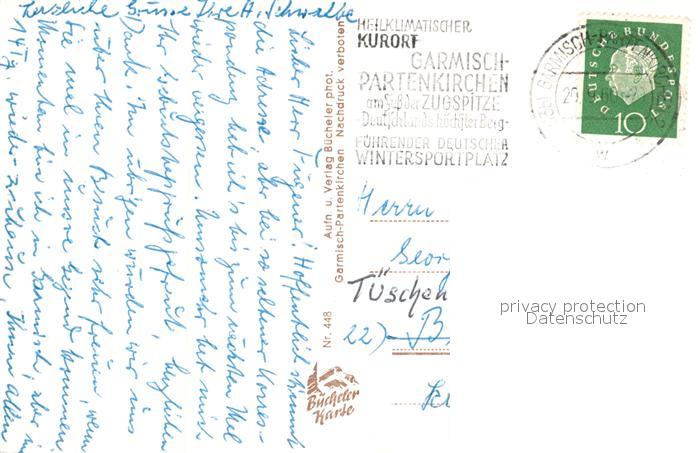 Herzliche Grüsse Ihre H. Schwalbe
Lieber Herr Tügener! Hoffentlich stimmt
die Adresse, aber bei so seltener Korres-
pondenz hab ich's bis zum nächsten Mal
wieder vergessen. Umsomehr hat mich
Ihr Geburtstagsgruß gefreut, herzlichen
Dank. Im übrigen würden wir uns
über Ihren Besuch sehr freuen, wenn
Sie mal in unsere Gegend kommen.
Momentan bin ich in Garmisch, aber
14/9. wieder zuhause, Ihnen allen
Nr. 448
Aufn. u. Verlag Bücheler phot.
Garmisch-Partenkirchen Nachdruck verboten
Bücheler
Karte
HEILKLIMATISCHER
KURORT
GARMISCH-
PARTENKIRCHEN
am Fuß der ZUGSPITZE
-Deutschlands höchster Berg-
FÜHRENDER DEUTSCHER
WINTERSPORTPLATZ
GARMISCH-PARTENKIRCHEN
DEUTSCHE BUNDESPOST
10
Herrn
Geor
Tüschen
22) B
privacy protection
Datenschutz